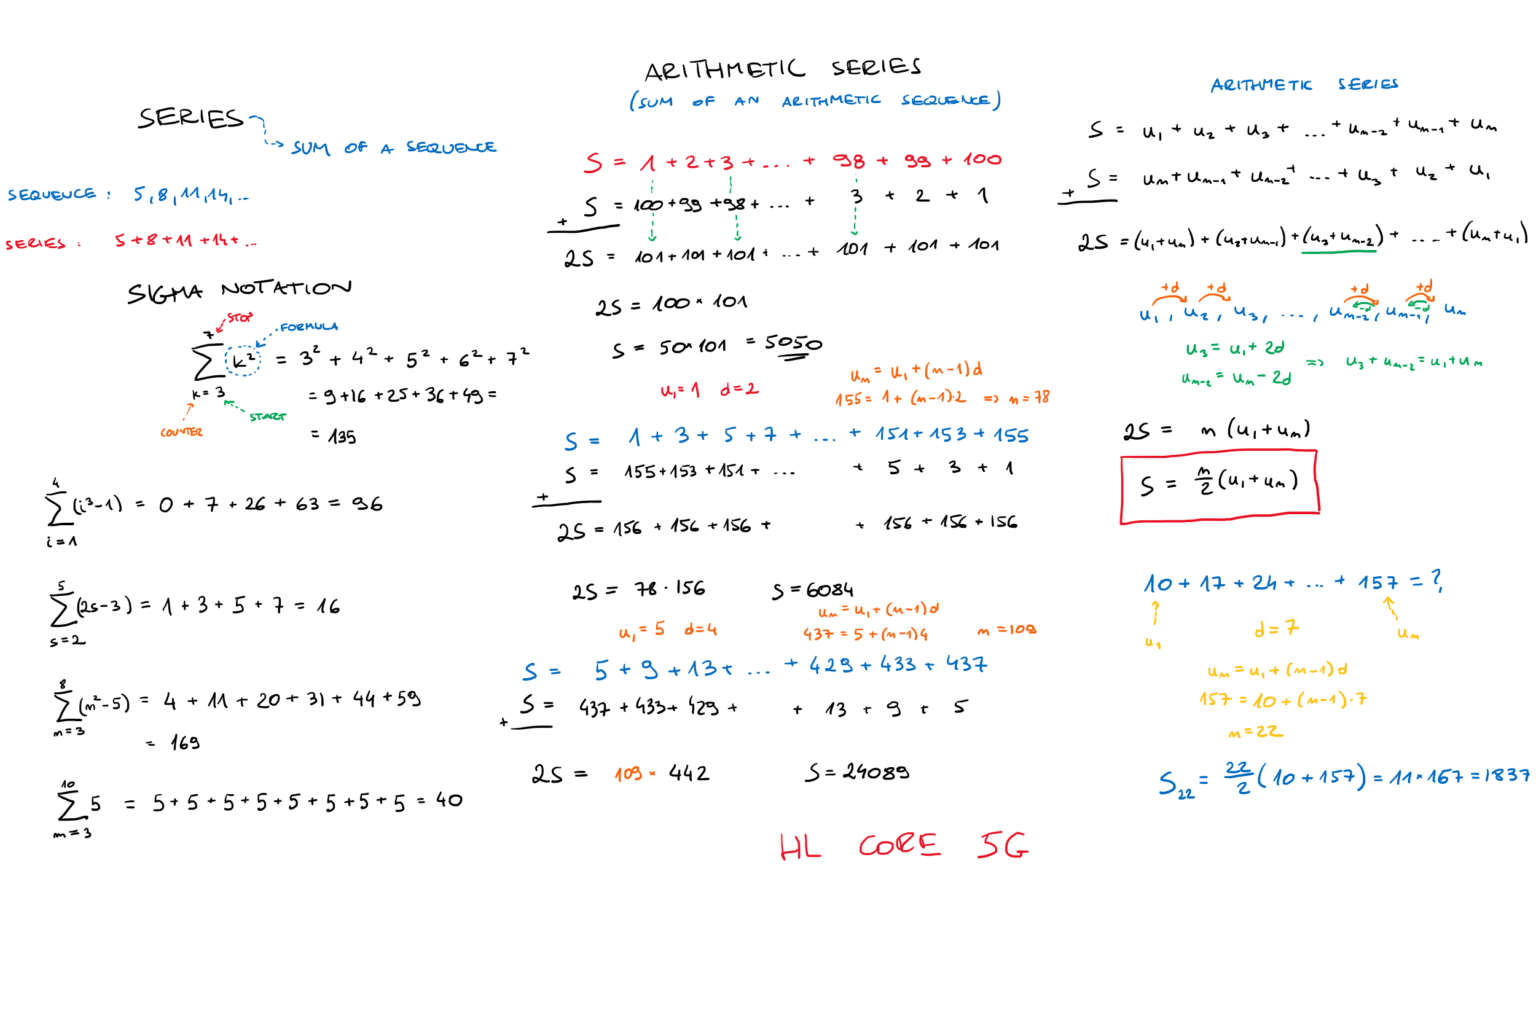 SERIES
SUM OF A SEQUENCE
SEQUENCE : 5, 8, 11, 14, ...
SERIES : 5 + 8 + 11 + 14 + ...
SIGMA NOTATION
STOP
FORMULA
7
∑ k² = 3² + 4² + 5² + 6² + 7²
k = 3
START
COUNTER
= 9 + 16 + 25 + 36 + 49 =
= 135
4
∑ (i³ - 1) = 0 + 7 + 26 + 63 = 96
i = 1
5
∑ (2s - 3) = 1 + 3 + 5 + 7 = 16
s = 2
8
∑ (m² - 5) = 4 + 11 + 20 + 31 + 44 + 59
m = 3
= 169
10
∑ 5 = 5 + 5 + 5 + 5 + 5 + 5 + 5 + 5 = 40
m = 3
ARITHMETIC SERIES
(SUM OF AN ARITHMETIC SEQUENCE)
S = 1 + 2 + 3 + ... + 98 + 99 + 100
+ S = 100 + 99 + 98 + ... + 3 + 2 + 1
2S = 101 + 101 + 101 + ... + 101 + 101 + 101
2S = 100 · 101
S = 50 · 101 = 5050
u₁ = 1 d = 2
uₙ = u₁ + (n-1)d
155 = 1 + (n-1)·2 => n = 78
S = 1 + 3 + 5 + 7 + ... + 151 + 153 + 155
+ S = 155 + 153 + 151 + ... + 5 + 3 + 1
2S = 156 + 156 + 156 + + 156 + 156 + 156
2S = 78 · 156 S = 6084
u₁ = 5 d = 4
uₙ = u₁ + (n-1)d
437 = 5 + (n-1)4 n = 109
S = 5 + 9 + 13 + ... + 429 + 433 + 437
+ S = 437 + 433 + 429 + + 13 + 9 + 5
2S = 109 · 442 S = 24089
HL CORE 5G
ARITHMETIC SERIES
S = u₁ + u₂ + u₃ + ... + uₙ₋₂ + uₙ₋₁ + uₙ
+ S = uₙ + uₙ₋₁ + uₙ₋₂ + ... + u₃ + u₂ + u₁
2S = (u₁+uₙ) + (u₂+uₙ₋₁) + (u₃+uₙ₋₂) + ... + (uₙ+u₁)
+d +d +d +d
-d -d
u₁, u₂, u₃, ..., uₙ₋₂, uₙ₋₁, uₙ
u₃ = u₁ + 2d
uₙ₋₂ = uₙ - 2d
=> u₃ + uₙ₋₂ = u₁ + uₙ
2S = n (u₁ + uₙ)
S = n/2 (u₁ + uₙ)
10 + 17 + 24 + ... + 157 = ?
u₁ d = 7 uₙ
uₙ = u₁ + (n-1)d
157 = 10 + (n-1)·7
n = 22
S₂₂ = 22/2 (10 + 157) = 11 · 167 = 1837